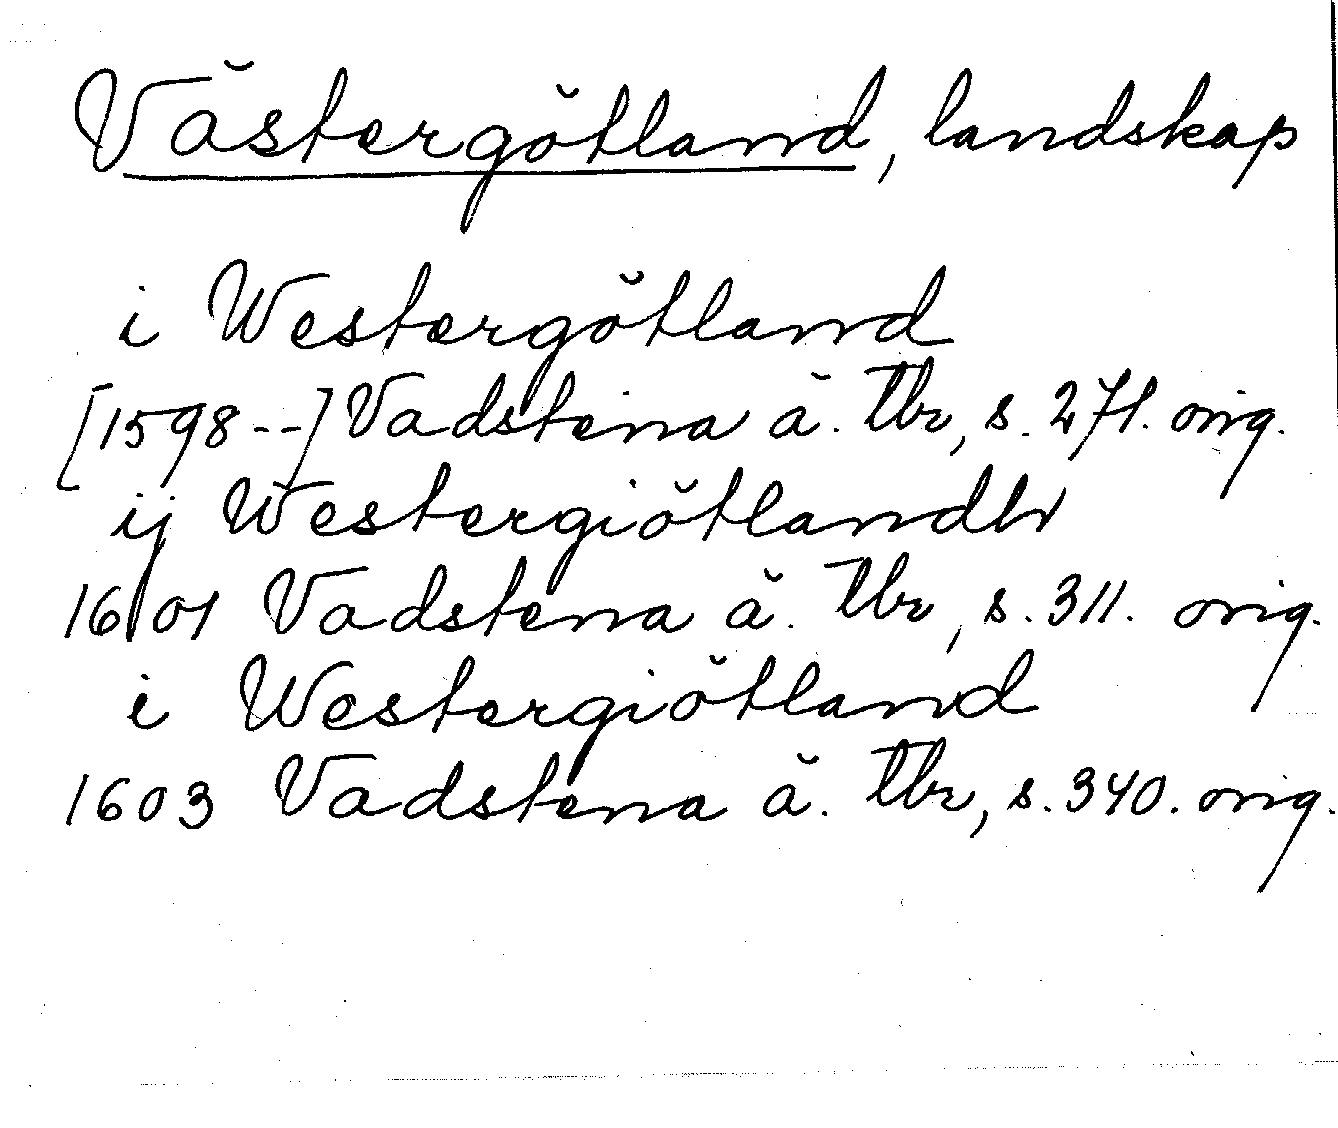 Västergötland, landskap
i Westergötland
[1598--] Vadstena ä. tbr, s. 271. orig.
ij Westergiötlandh
1601 Vadstena ä. tbr, s. 311. orig.
i Westergiötland
1603 Vadstena ä. tbr, s. 340. orig.